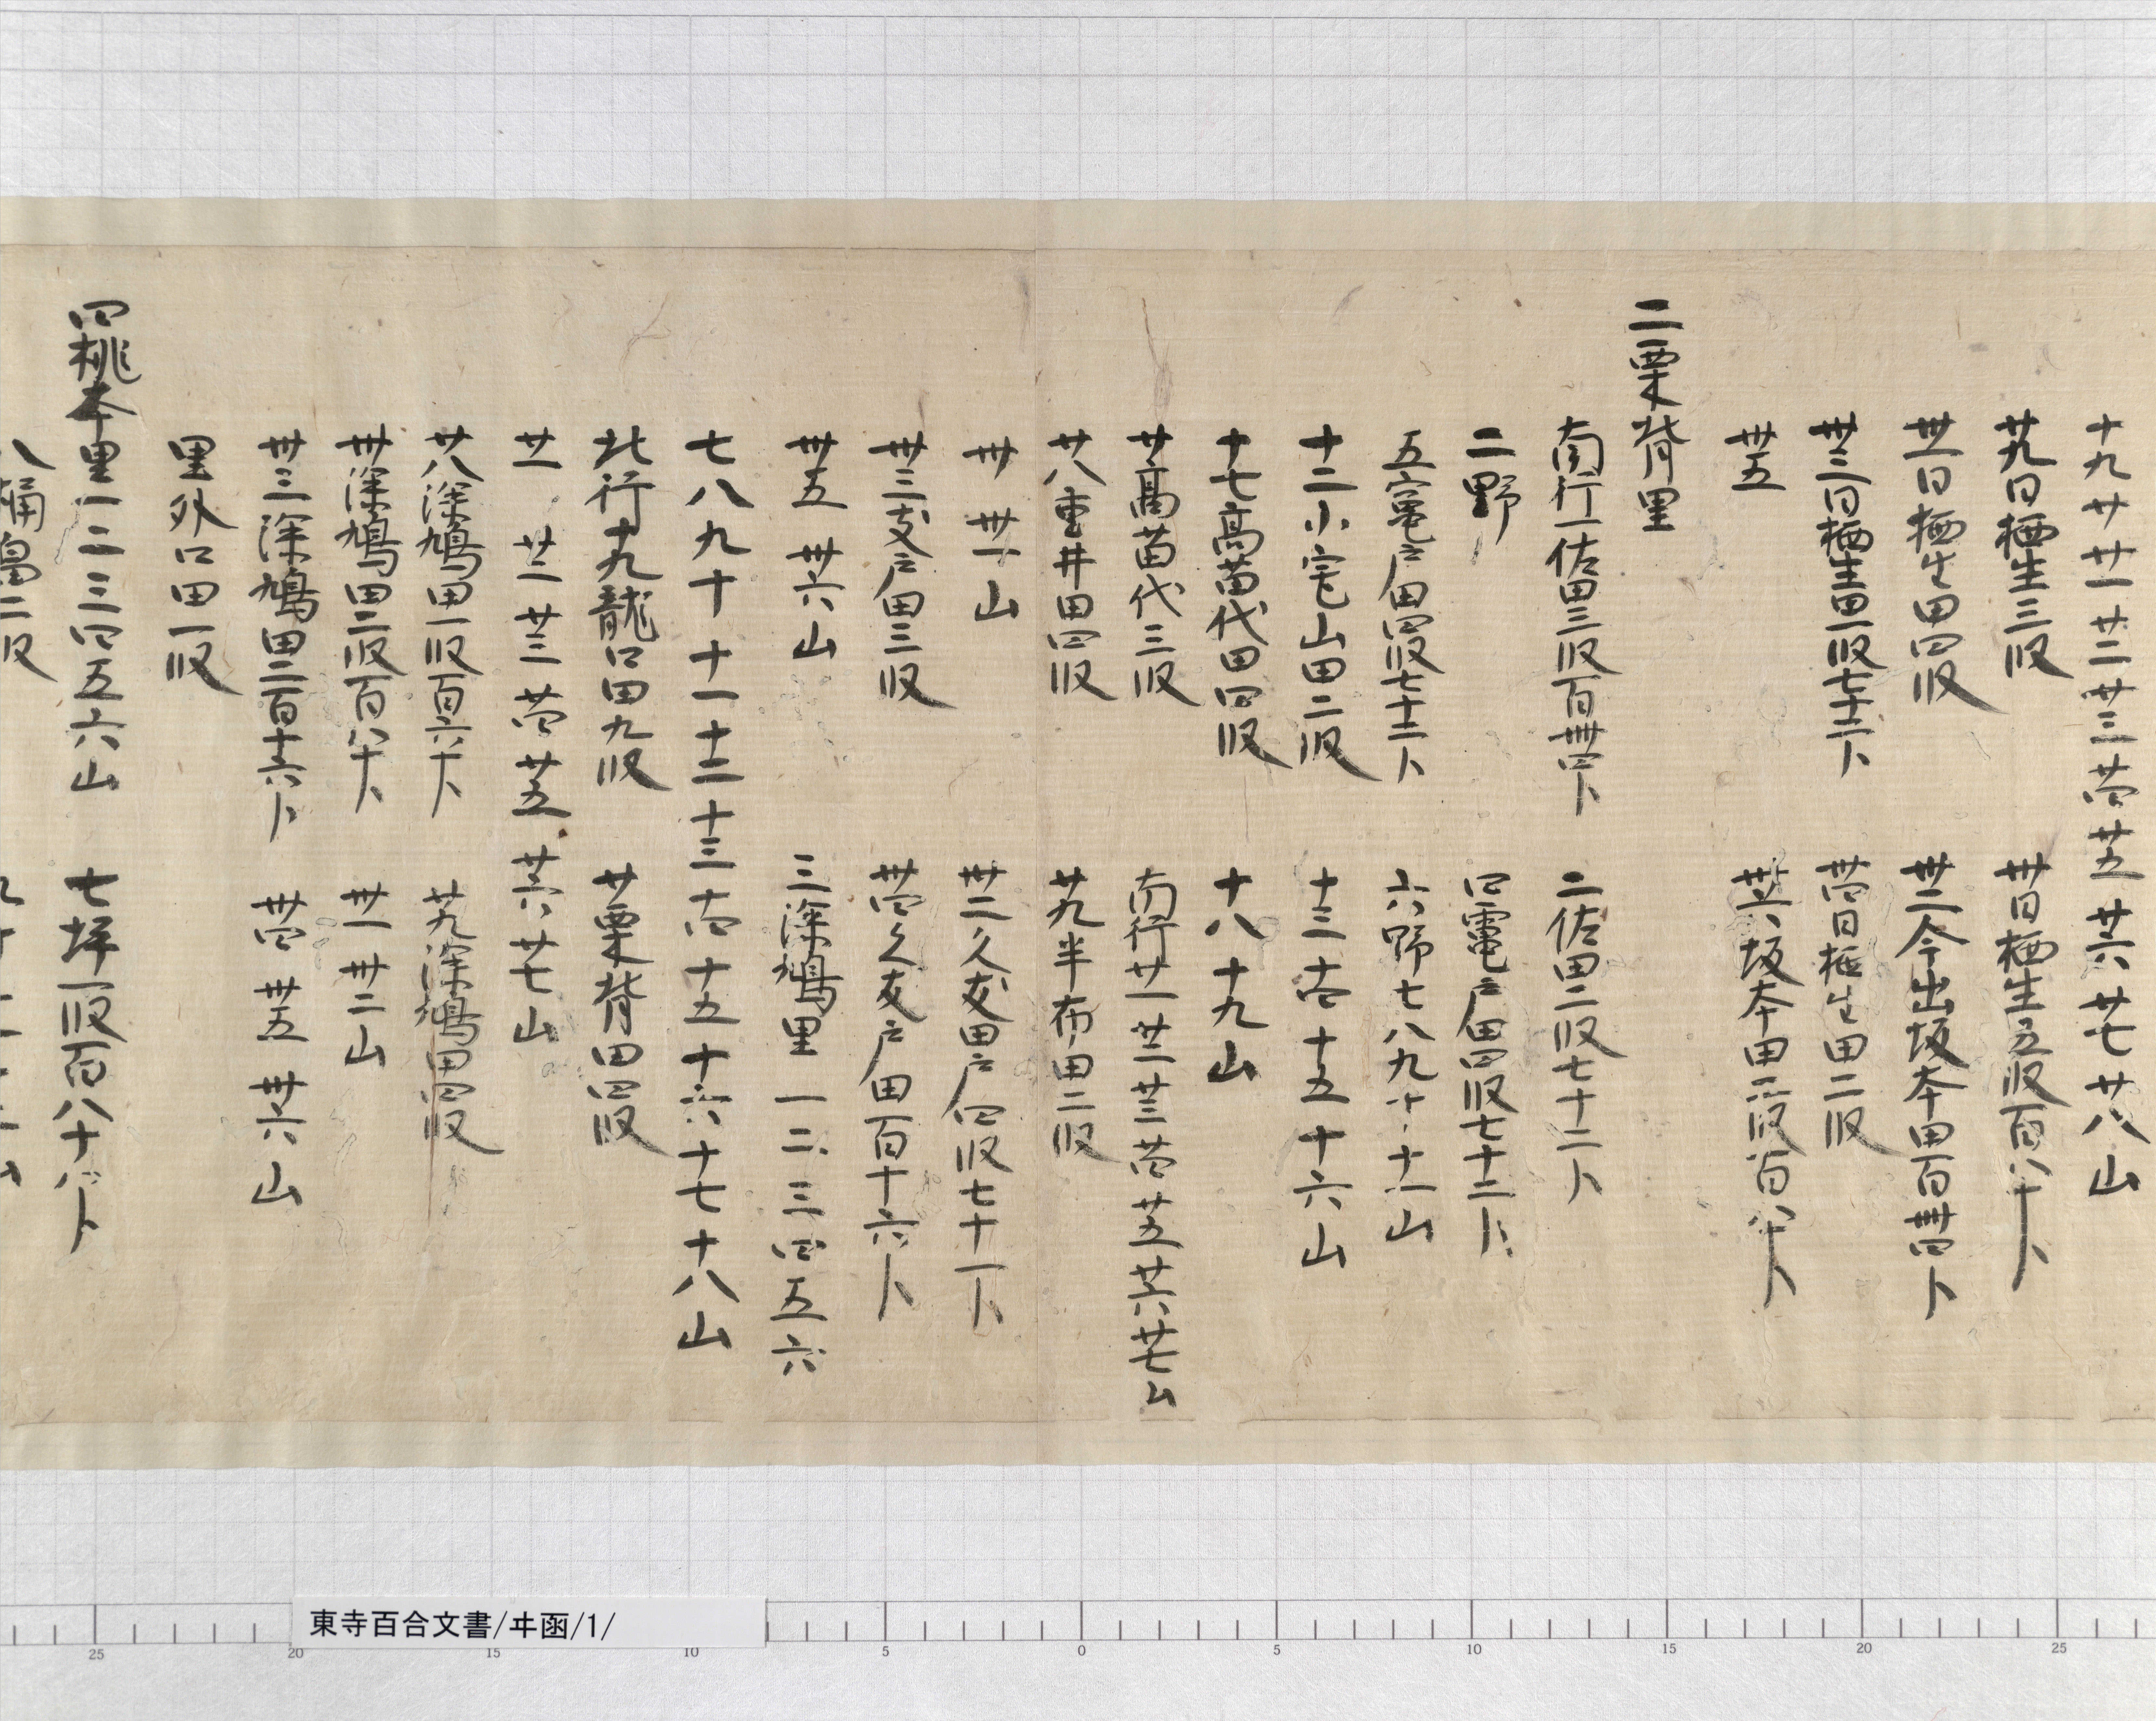 十九廿廿一廿二廿三廿四廿五廿六廿七廿八山
廿九日栖生三段 卅日栖生五段百八十卜
卅一日栖生田四段 卅二今出坂本田百卌四卜
卅三日栖生田一段七十二卜 卅四日栖生田二段
卅五 卅六坂本田二段百八十卜
二栗背里
南行一佐田三段百卌四卜 二佐田二段七十二卜
三野 四竃戸田四段七十二卜
五竃戸田四段七十二卜 六野七八九十十一山
十二小宅山田二段 十三十四十五十六山
十七高苗代田四段 十八十九山
廿高苗代三段 南行廿一廿二廿三廿四廿五廿六廿七山
廿八重井田四段 廿九半布田二段
卅卅一山 卅二久女田戸四段七十二卜
卅三女戸田三段 卅四久女戸田百十六卜
卅五卅六山 三深鳩里一二三四五六
七八九十十一十二十三十四十五十六十七十八山
北行十九龍口田九段 廿栗背田四段
廿一廿二廿三廿四廿五廿六廿七山
廿八深鳩田一段百六十卜 廿九深鳩田四段
卅深鳩田二段百八十卜 卅一卅二山
卅三深鳩田二百十六卜 卅四卅五卅六山
里外口田一段
四桃本里一二三四五六山 七坪一段百八十八卜